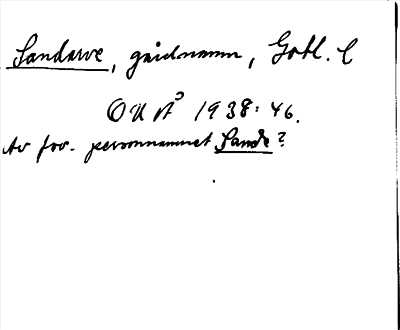 Sandarve, gårdnamn, Gotl. l
OUÅ 1938: 46.
Av fsv. personnamnet Sande?